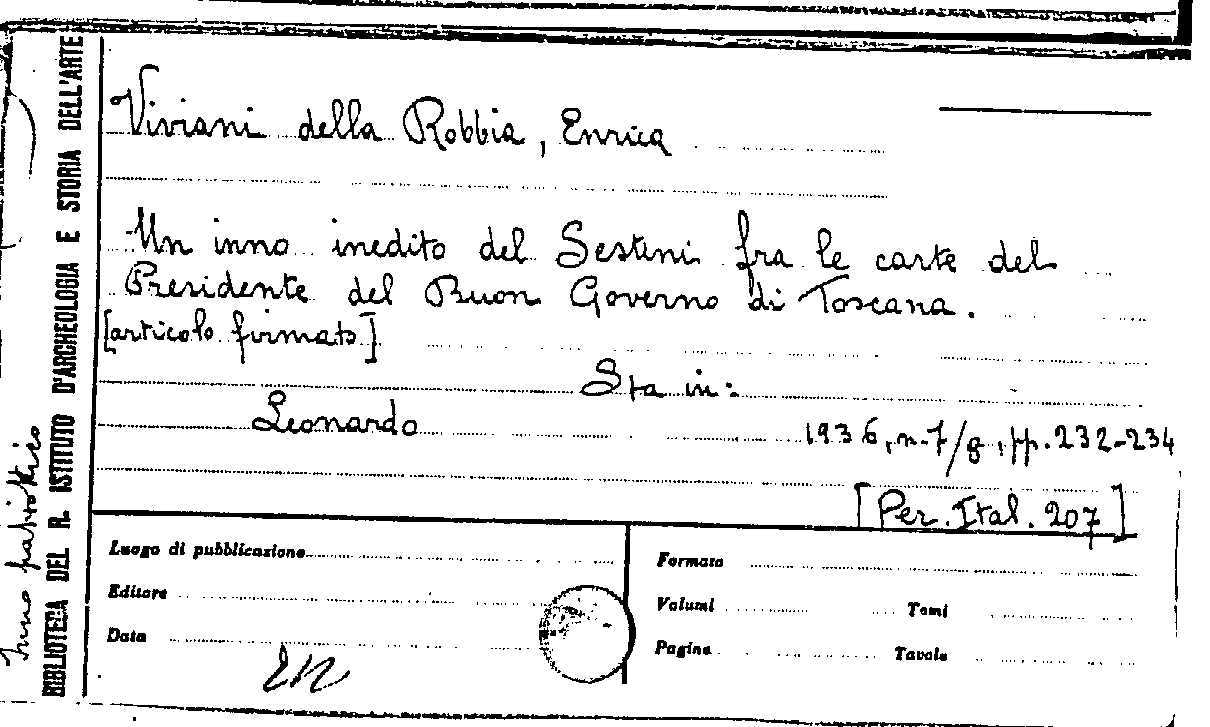 Viviani della Robbia, Enrica
Un inno inedito del Sestini fra le carte del
Presidente del Buon Governo di Toscana.
[articolo firmato]
Sta in:
Leonardo
1936, n. 7/8, pp. 232-234
[Per. Ital. 207]
Luogo di pubblicazione
Editore
Data
Formato
Volumi Tomi
Pagine Tavole
BIBLIOTECA DEL R. ISTITUTO D'ARCHEOLOGIA E STORIA DELL'ARTE
Inno patriottico